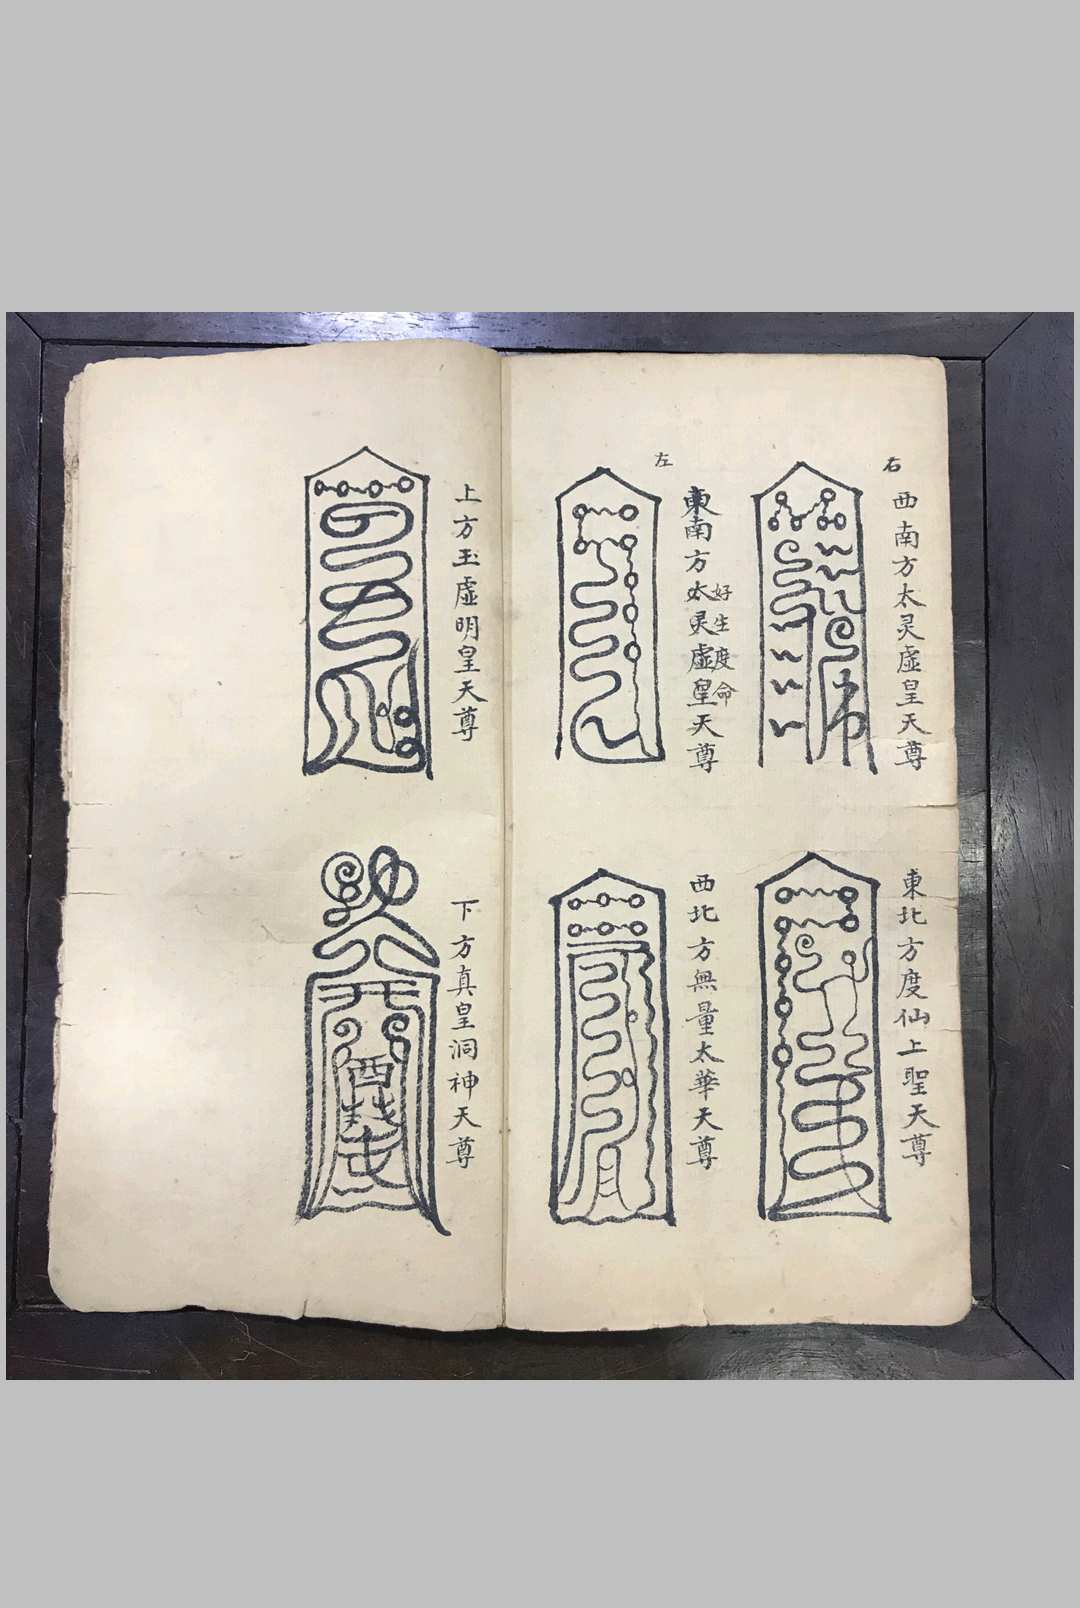 右
西南方太灵虛皇天尊
東北方度仙上聖天尊
左
東南方太灵虛皇天尊
好生度命
西北方無量太華天尊
上方玉虛明皇天尊
下方真皇洞神天尊